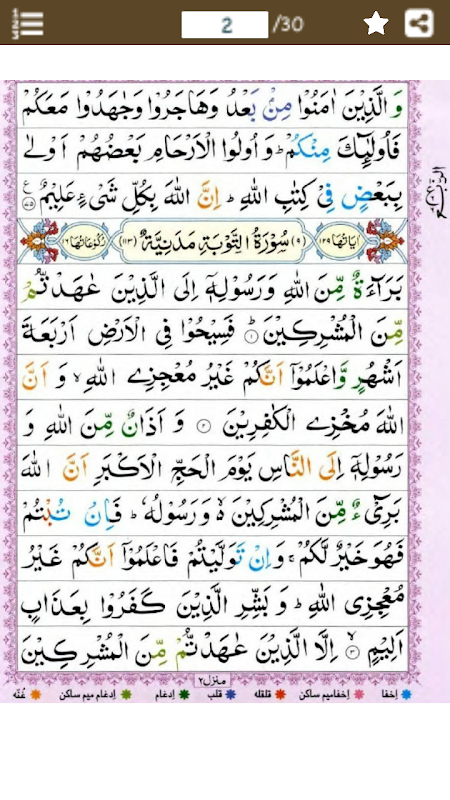 2 /30
وَالَّذِیْنَ اٰمَنُوْا مِنْۢ بَعْدُ وَهَاجَرُوْا وَجٰهَدُوْا مَعَكُمْ
فَاُولٰٓئِكَ مِنْكُمْ ؕ وَ اُولُوا الْاَرْحَامِ بَعْضُهُمْ اَوْلٰی
بِبَعْضٍ فِیْ كِتٰبِ اللّٰهِ ؕ اِنَّ اللّٰهَ بِكُلِّ شَیْءٍ عَلِیْمٌ ۝۷۵
اٰیَاتُهَا ۱۲۹ (۹) سُوْرَةُ التَّوْبَةِ مَدَنِیَّةٌ (۱۱۳) رُكُوْعَاتُهَا ۱۶
بَرَآءَةٌ مِّنَ اللّٰهِ وَرَسُوْلِهٖۤ اِلَی الَّذِیْنَ عٰهَدْتُّمْ
مِّنَ الْمُشْرِكِیْنَ ؕ۝۱ فَسِیْحُوْا فِی الْاَرْضِ اَرْبَعَةَ
اَشْهُرٍ وَّاعْلَمُوْۤا اَنَّكُمْ غَیْرُ مُعْجِزِی اللّٰهِ ۙ وَ اَنَّ
اللّٰهَ مُخْزِی الْكٰفِرِیْنَ ۝۲ وَ اَذَانٌ مِّنَ اللّٰهِ وَ
رَسُوْلِهٖۤ اِلَی النَّاسِ یَوْمَ الْحَجِّ الْاَكْبَرِ اَنَّ اللّٰهَ
بَرِیْٓءٌ مِّنَ الْمُشْرِكِیْنَ ۙ۬ وَ رَسُوْلُهٗ ؕ فَاِنْ تُبْتُمْ
فَهُوَ خَیْرٌ لَّكُمْ ۚ وَاِنْ تَوَلَّیْتُمْ فَاعْلَمُوْۤا اَنَّكُمْ غَیْرُ
مُعْجِزِی اللّٰهِ ؕ وَ بَشِّرِ الَّذِیْنَ كَفَرُوْا بِعَذَابٍ
اَلِیْمٍ ۙ۝۳ اِلَّا الَّذِیْنَ عٰهَدْتُّمْ مِّنَ الْمُشْرِكِیْنَ
منزل۲
اِخفا اِخفامیم ساکن قلقله قلب اِدغام اِدغام میم ساکن غُنّه